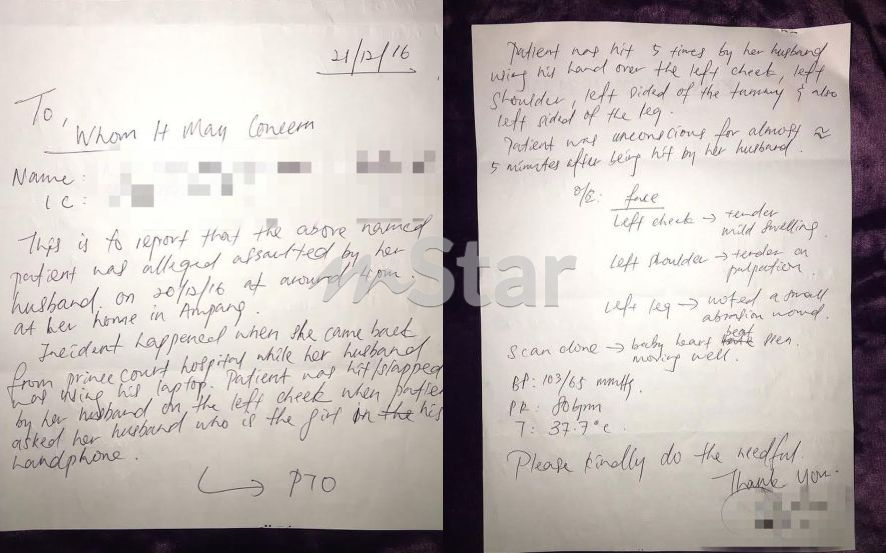 21/12/16
To,
Whom It May Concern
Name :
IC :
This is to report that the above named
patient was alleged assaulted by her
husband on 20/12/16 at around 4pm.
at her home in Ampang.
Incident happened when she came back
from prince court hospital while her husband
was using his laptop. Patient was hit/slapped
by her husband on the left cheek when patient
asked her husband who is the girl on the his
handphone.
PTO
Patient was hit 5 times by her husband
using his hand over the left cheek, left
shoulder, left sided of the tummy & also
left sided of the leg.
Patient was unconscious for almost ≈
5 minutes after being hit by her husband.
O/E: face
left cheek → tender
mild swelling.
left shoulder → tender on
palpation.
left leg → noted a small
abrasion wound.
scan done → baby heart beat seen.
moving well.
BP: 103/65 mmHg.
PR: 80bpm
T: 37.7°c.
Please kindly do the needful.
Thank you.
mStar